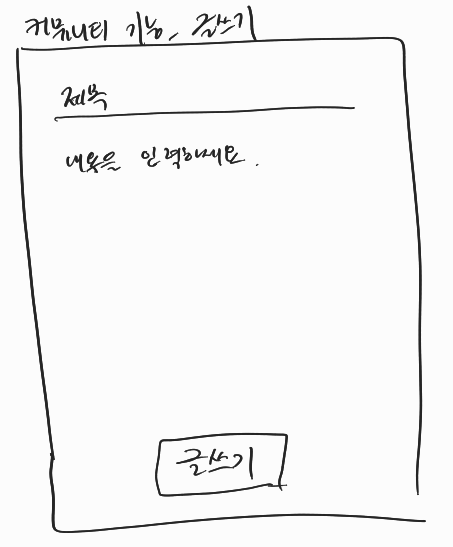 커뮤니티 기능, 글쓰기
제목
내용을 입력하세요.
글쓰기